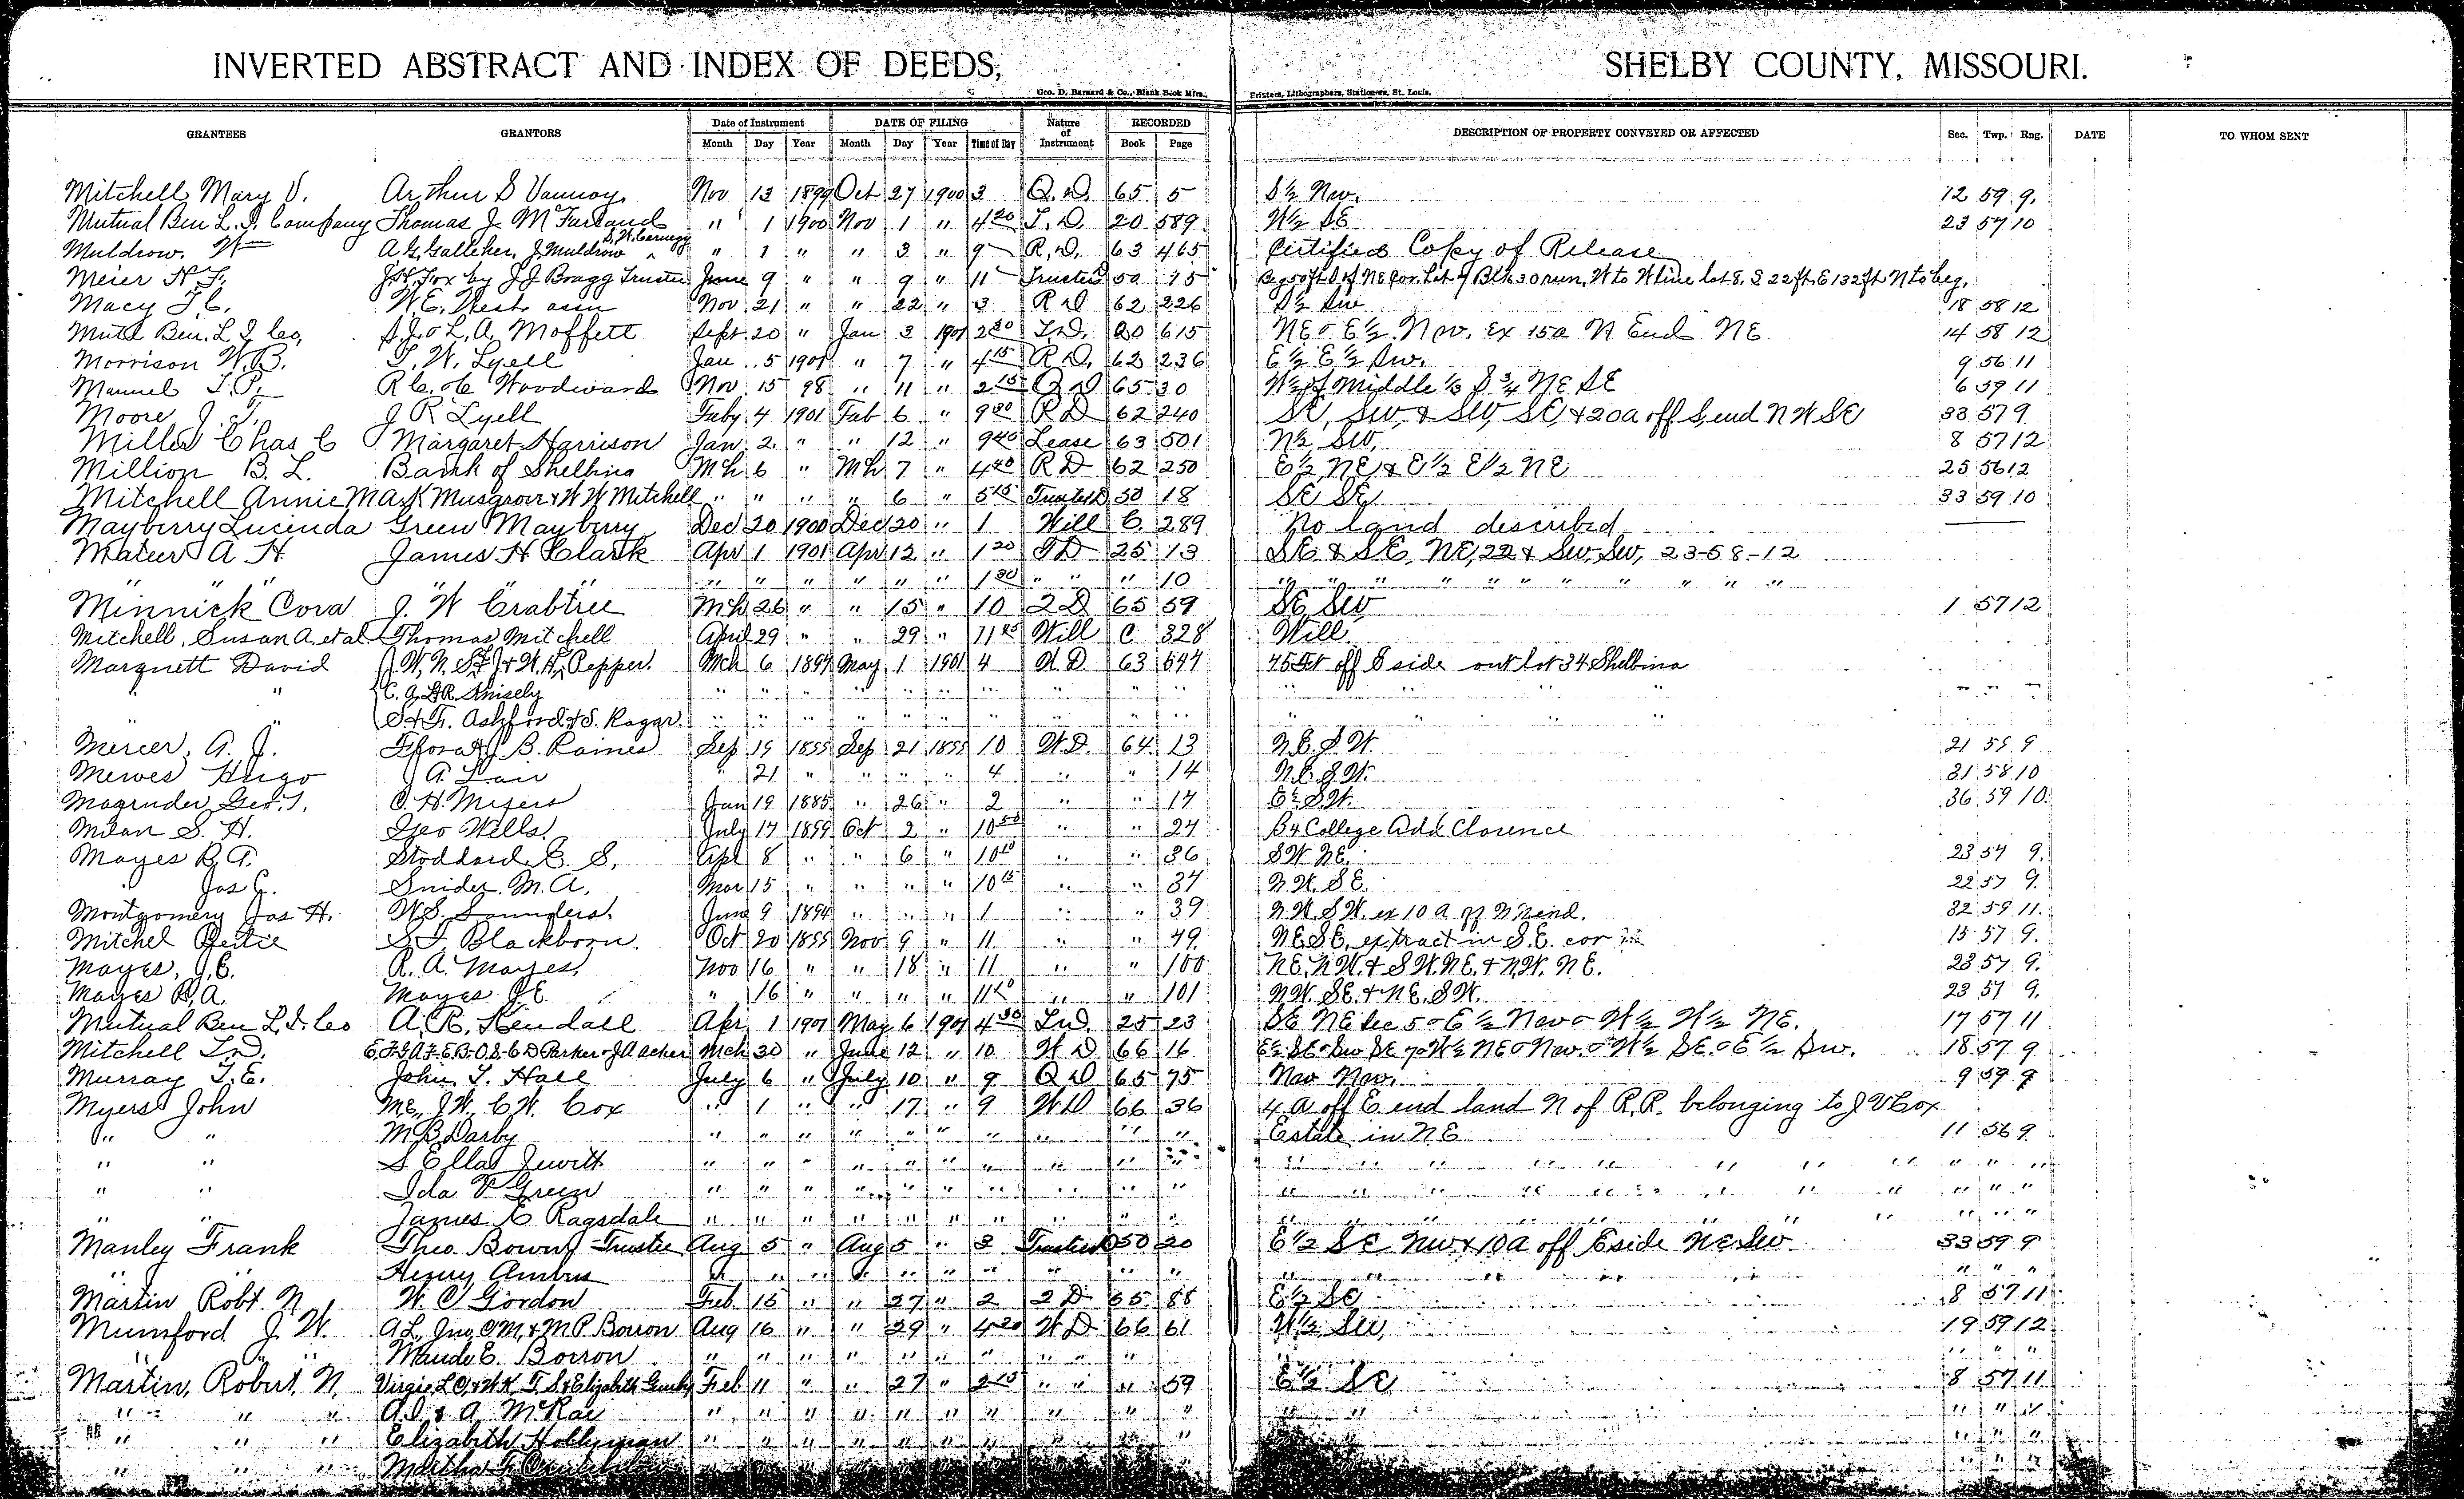 INVERTED ABSTRACT AND INDEX OF DEEDS, SHELBY COUNTY, MISSOURI.
Geo. D. Barnard & Co., Blank Book Mfrs., Printers, Lithographers, Stationers, St. Louis.
GRANTEES GRANTORS Date of Instrument DATE OF FILING Nature of Instrument RECORDED DESCRIPTION OF PROPERTY CONVEYED OR AFFECTED Sec. Twp. Rng. DATE TO WHOM SENT
Month Day Year Month Day Year Time of Day Book Page
Mitchell Mary V. Arthur S Vannoy Nov 13 1899 Oct 27 1900 3 Q. D. 65 5 S½ Nw. 12 59 9.
Mutual Ben L. I. Company Thomas J. McFarland " 1 1900 Nov 1 " 4 20 T. D. 20 589 W½ SE 23 57 10
Muldrow. Wm A. G. Galleher, J. Muldrow S. W. Carnegy " 1 " " 3 " 9 R. D. 63 465 Certified Copy of Release
Meier H. F. J. H. Fox by J J Bragg Trustee June 9 " " 9 " 11 Trustees 50 15 Beg 50 ft S of NE Cor. Lot 7 Blk 30 run. W to W line lot 8. S 22 ft. E 132 ft N to beg.
Macy J. C. W. E. West assn Nov 21 " " 22 " 3 R D 62 226 S½ Sw 18 58 12
Mutl Ben. L I Co, S. J. & L. A. Moffett Sept 20 " Jan 3 1901 2 30 T. D. 20 615 NE & E½ Nw. Ex 15a N End NE 14 58 12
Morrison W. B. T. W. Lyell Jan 5 1901 " 7 " 4 15 R D. 62 236 E½ E½ Sw. 9 56 11
Manuel T. P. R C. & C Woodward Nov 15 98 " 11 " 2 15 Q D 65 30 W½ of Middle ⅓ S ¾ NE SE 6 59 11
Moore J. T. J R Lyell Feby 4 1901 Feb 6 " 9 30 R D 62 240 SE, SW, & SW, SE, & 20a off S end N W SE 33 57 9
Miller Chas C Margaret Harrison Jan 2 " " 12 " 9 40 Lease 63 501 N½ SW, 8 57 12
Million B. L. Bank of Shelbina Mh 6 " Mh 7 " 4 40 R D 62 250 E½ NE & E½ E½ NE 25 56 12
Mitchell Annie M A. K Musgrove & W W Mitchell " " " " 6 " 5 15 Trustees D 50 18 SE SE 33 59 10
Mayberry Lucinda Green Mayberry Dec 20 1900 Dec 20 " 1 Will C. 289 No land described
Mateer A H James H Clark Apr 1 1901 Apr 12 " 1 20 T D 25 13 SE & SE, NE, 22 & Sw, Sw, 23-58-12
" " " " " " " " " 1 30 " " " 10 " " " " " " " " " " "
Minnick Cora J. W Crabtree Mh 26 " " 15 " 10 2 D 65 59 SE SW 1 57 12
Mitchell, Susan A. et al Thomas Mitchell April 29 " " 29 " 11 45 Will C 328 Will
Marquett David J. W, N. S. F. J & W. H. Pepper. Mch 6 1897 May 1 1901 4 W. D 63 547 75 ft off S side out lot 34 Shelbina
" " C. G. & R. Knisely " " " " " " " " " " " " "
" " S & F. Ashford & S. Ragar. " " " " " " " " " " " "
Mercer, A. J. Flora & J. B. Raines Sep 19 1899 Sep 21 1899 10 W. D. 64 13 N. E. S. W. 21 58 9
Mewes Hugo J A. Lair " 21 " " " " 4 " " 14 N. E. S. W. 31 58 10
Magruder Geo. T. C. H. Meyers Jan 19 1885 " 26 " 2 " " 17 E½ S. W. 36 59 10.
Milan S. H. Geo Wells. July 17 1899 Oct 2 " 10 50 " " 27 B 4 College Add Clarence
Mayes R. A. Stoddard. E. S. Apl 8 " " 6 " 10 10 " " 36 S W. N E. 23 57 9.
" Jas E. Snider. M. A. Mar 15 " " " " 10 15 " " 37 N. W. S E. 22 57 9.
Montgomery Jas H. W. S. Saunders. June 9 1894 " " " 1 " " 39 N. W. S W. ex 10 A off N end. 32 59 11.
Mitchel Bertie S. T. Blackborn. Oct 20 1899 Nov 9 " 11 " " 79 N. E. S. E. ex tract in S. E. cor 15 57 9.
Mayes, J. E. R. A. Mayes. Nov 16 " " 18 " 11 " " 100 N. E. N. W. & S W. N E. & N. W. N. E. 23 57 9.
Mayes R. A. Mayes J E. " 16 " " " " 11 20 " " 101 N W. S E. & N. E. S W. 23 57 9.
Mutual Ben L. I. Co A. R. Kendall Apr 1 1901 May 6 1901 4 30 T D. 25 23 SE NE Sec 5 & E½ Nw & W½ W½ NE. 17 57 11
Mitchell T. D. Mch 30 " June 12 " 10 W D 66 16 18 57 9
Murray T. E. John T. Hall July 6 " July 10 " 9 Q D 65 75 Nw Nw. 9 59 9
Myers John M. E, J. W. C W. Cox " 1 " " 17 " 9 W D 66 36 4 A off E end land N of R. R. belonging to J V Cox
" " M. B Darby " " " " " " " " " " Estate in N E 11 56 9
" " S Ella Jewitt " " " " " " " " " " " " " " " " " " " "
" " Ida V Green " " " " " " " " " " " " " " " " " " " "
" " James E Ragsdale " " " " " " " " " " " " " " " " " "
Manley Frank Theo Bown Trustee Aug 5 " Aug 5 " 3 Trustees D 50 20 E½ SE NW & 10 a off E side NE SW 33 59 9
" " Henry Ambrus " " " " " " " " " " " " " " " " "
Martin Robt N W. C Gordon Feb 15 " " 27 " 2 2 D 65 88 E½ SE 8 57 11
Mumford J. W. A L, Jno, O M, & M P Borron Aug 16 " " 29 " 4 20 W D 66 61 W½ SW 19 59 12
" " Maude E. Borron " " " " " " " " " " " " "
Martin, Robert N. Feb 11 " " 27 " 2 15 " " " 59 E½ SE 8 57 11
" " " A. D. & A McRae " " " " " " " " " " " " " "
" " " Elizabeth Hollyman " " " " " " " " " " " " "
" " " Martha F. " " "